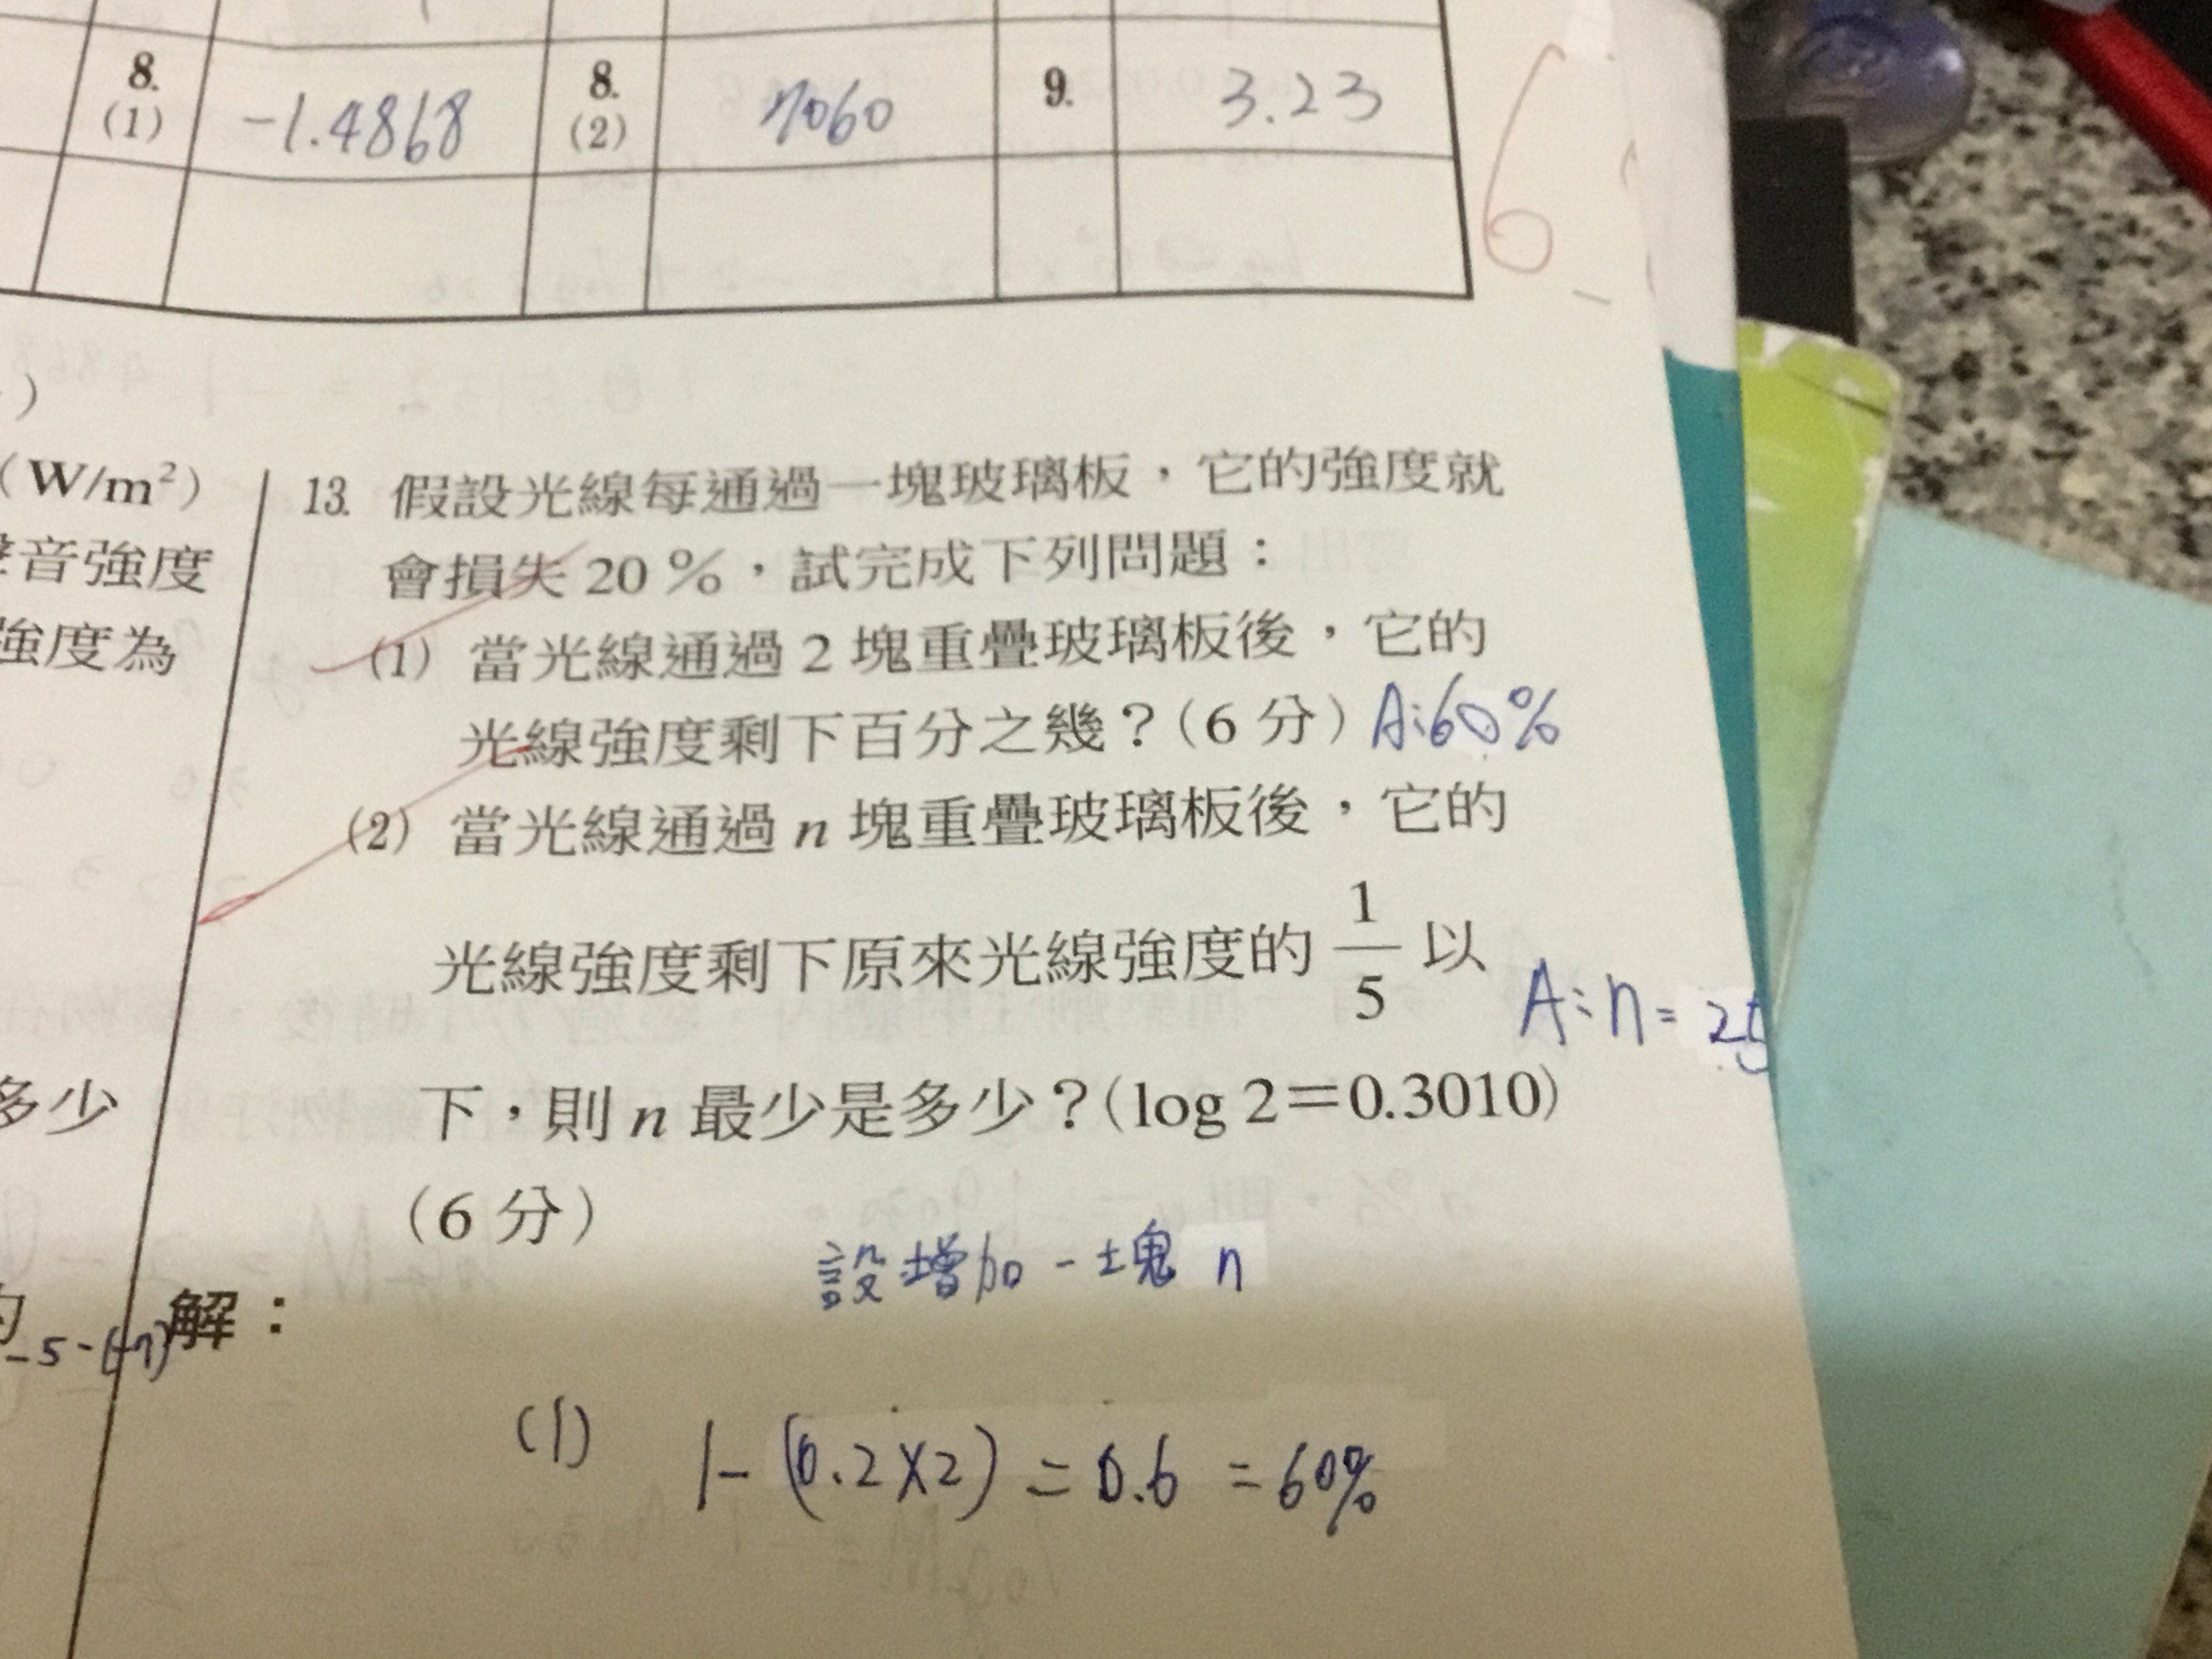 8.
(1)
-1.4868
8.
(2)
7060
9.
3.23
6
)
(W/m²)
音強度
強度為
多少
-5-(-7)
13. 假設光線每通過一塊玻璃板，它的強度就
會損失 20 %，試完成下列問題：
(1) 當光線通過 2 塊重疊玻璃板後，它的
光線強度剩下百分之幾？(6 分) A:60%
(2) 當光線通過 n 塊重疊玻璃板後，它的
光線強度剩下原來光線強度的 1/5 以
A:n=25
下，則 n 最少是多少？(log 2＝0.3010)
(6 分)
設增加一塊 n
解：
(1) 1-(0.2×2)=0.6 =60%